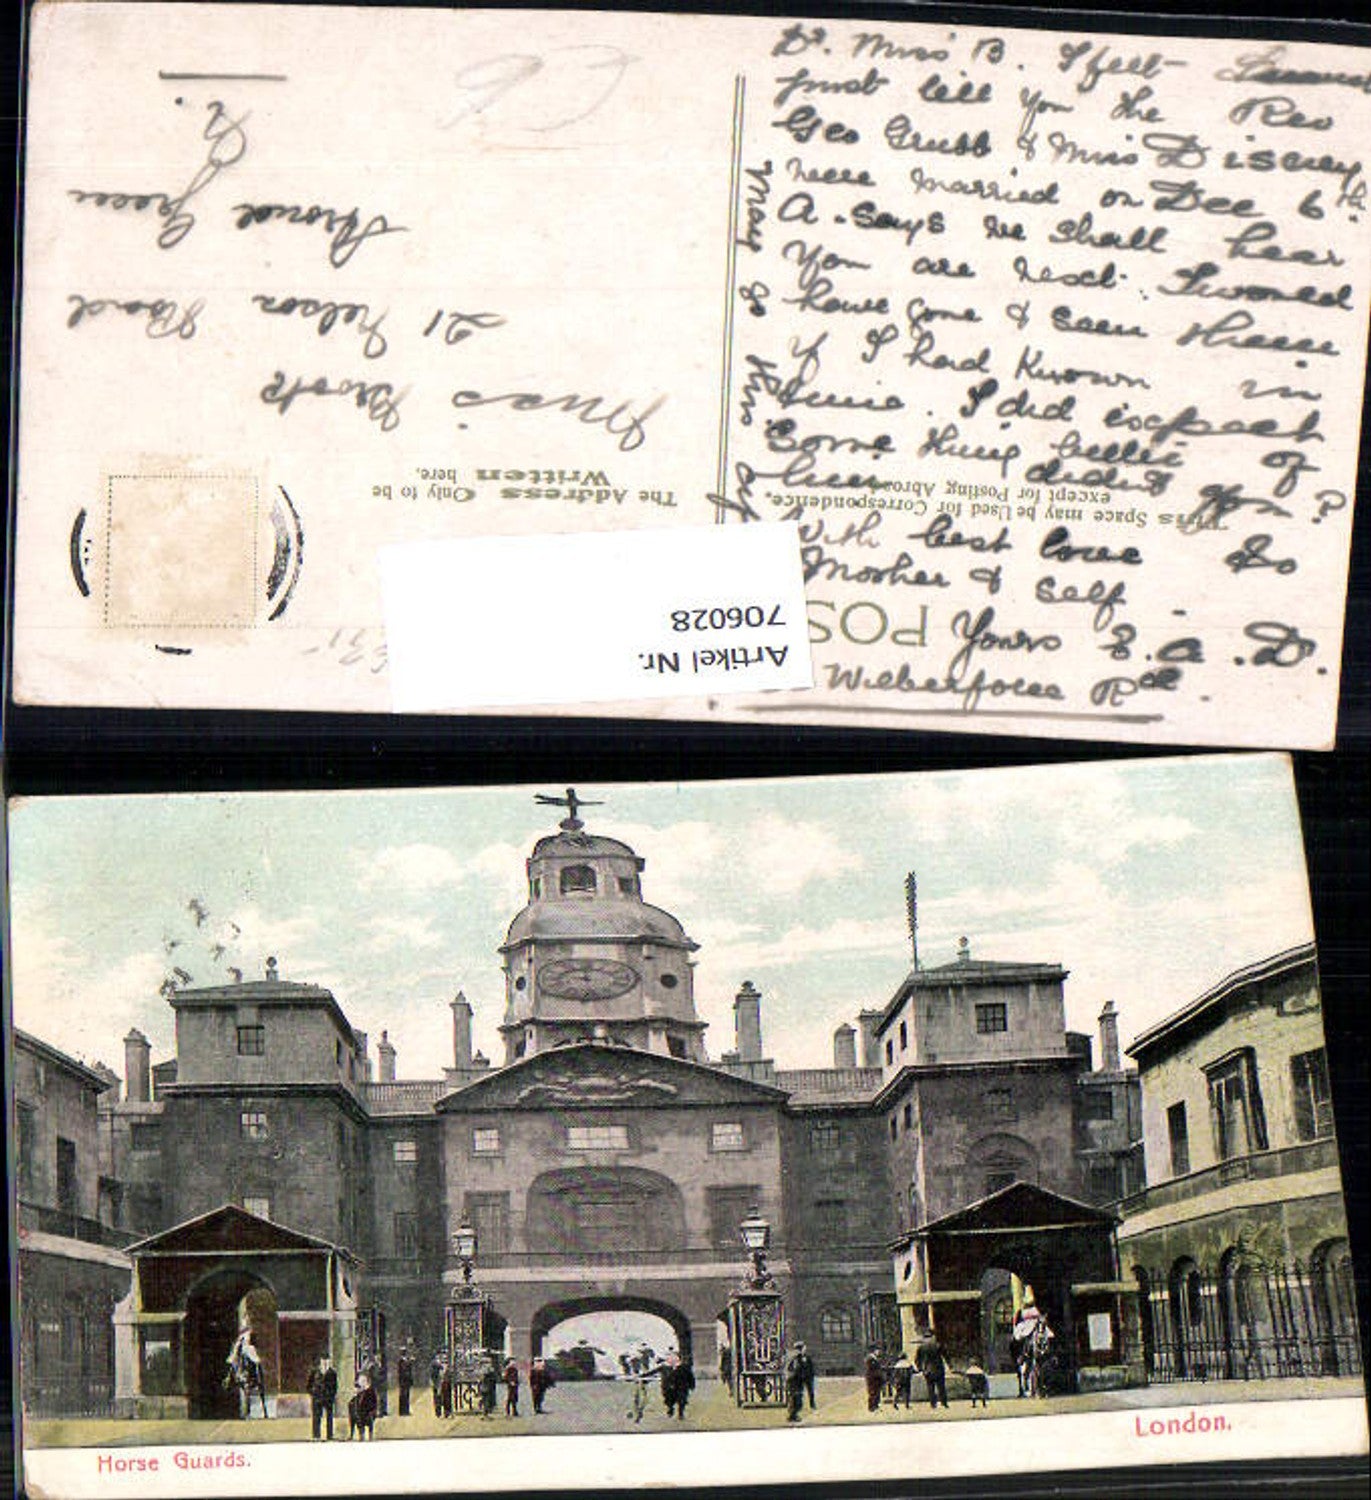 Dr. Miss B. I feel I
must tell you the Rev
Geo Grubb & Miss Disney
were married on Dec 6th.
A. says we shall hear
you are next. I would
have gone & seen them
if I had known in
time. I did expect
some thing better of
him didnt you?
With best love to
Mother & self.
Yours E. A. D.
Wilberforce Rd.
May go this
POS
This Space may be Used for Correspondence,
except for Posting Abroad
The Address Only to be
Written here.
Miss Brook
21 Nelson Road
Stroud Green
N.
Artikel Nr.
706028
Horse Guards.
London.